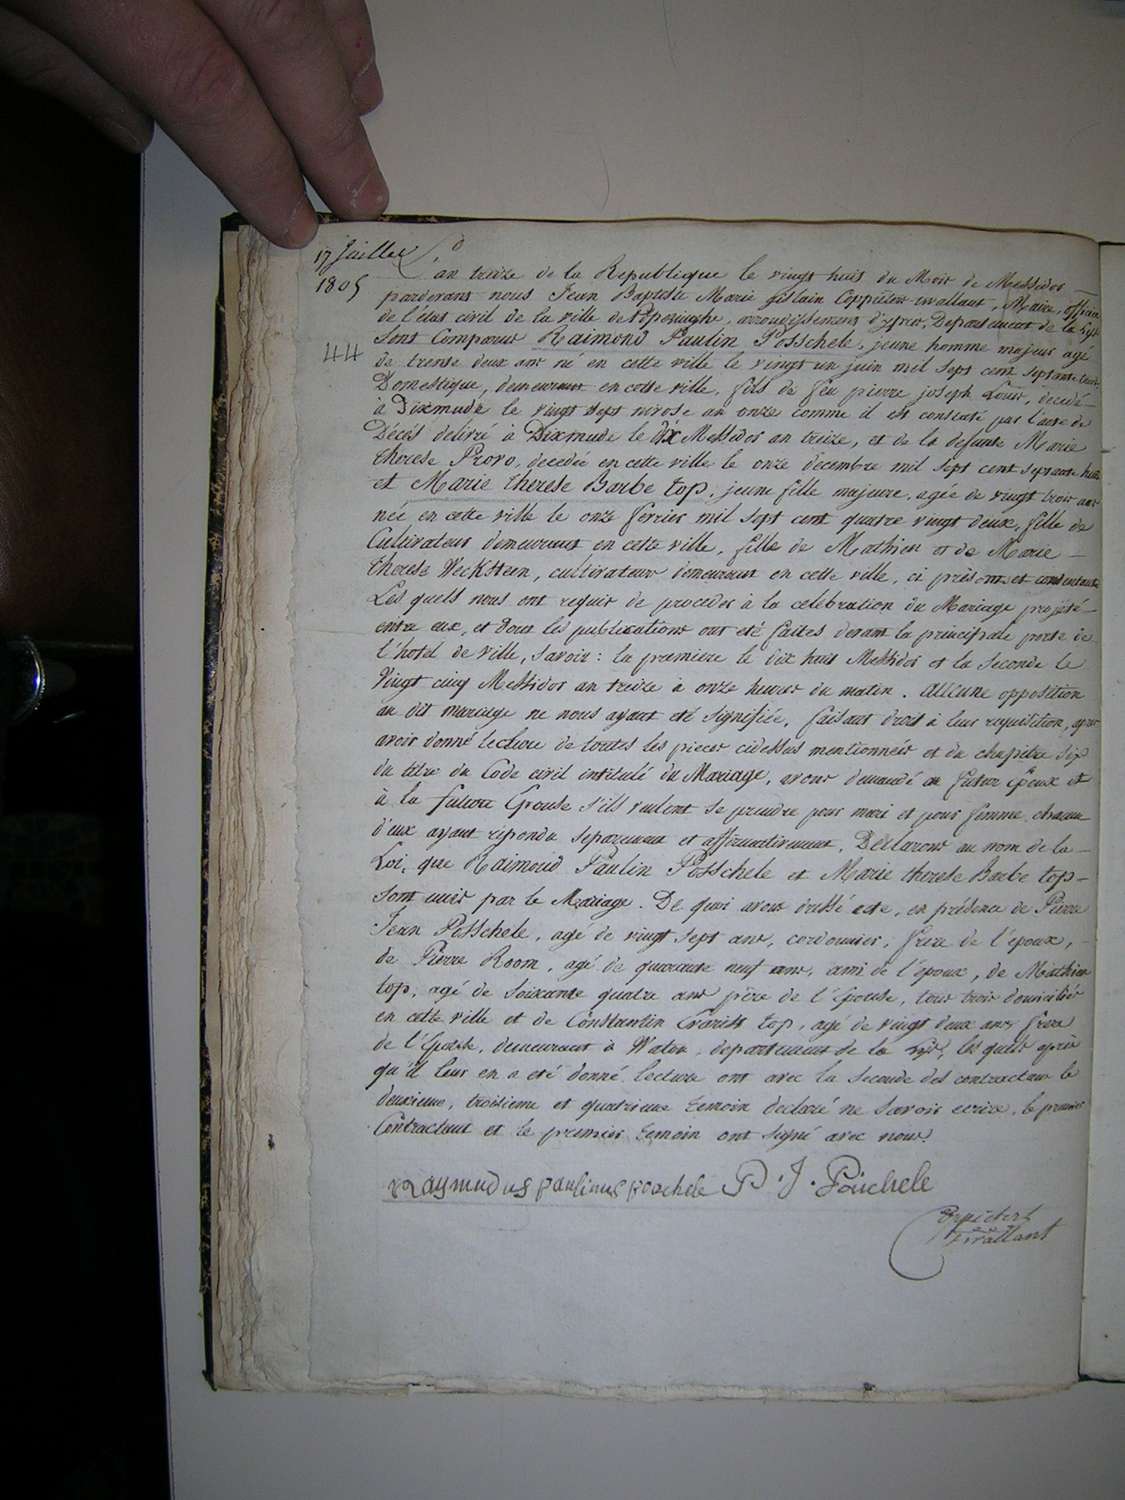 17 Juillet
1805
L'an treize de la Republique le vingt huit du Mois de Messidor
pardevant nous Jean Baptiste Marie gislain Coppieters wallant, Maire, officier
de l'état civil de la ville de Poperinghe, arrondissement d'ypres, Departement de la Lys
44
Sont Comparus Raimond Paulin Posschele, jeune homme majeur agé
de trente deux ans né en cette ville le vingt un juin mil sept cent septante trois
Domestique, demeurant en cette ville, fils de feu pierre joseph Louis, decedé
à Dixmude le vingt sept nivose an onze comme il est constaté par l'acte de
Décès delivré à Dixmude le dix Messidor an treize, et de la defunte Marie
therese Provo, decedée en cette ville le onze decembre mil sept cent septante huit
et Marie therese Barbe top, jeune fille majeure, agée de vingt trois ans
née en cette ville le onze fevrier mil sept cent quatre vingt deux, fille de
Cultivateur demeurant en cette ville, fille de Mathieu et de Marie
therese Wecksteen, cultivateur demeurant en cette ville, ci présents et consentants
Les quels nous ont requis de proceder à la celebration du Mariage projété
entre eux, et dont les publications ont été faites devant la principale porte de
l'hotel de ville, savoir : la premiere le dix huit Messidor et la seconde le
Vingt cinq Messidor an treize à onze heures du matin. Aucune opposition
au dit mariage ne nous ayant eté signifiée, faisant droit à leur requisition, après
avoir donné lecture de toutes les pieces cidessus mentionnées et du chapitre six
du titre du Code civil intitulé du Mariage, avons demandé au futur Epoux et
à la future Epouse s'ils veulent se prendre pour mari et pour femme, chacun
d'eux ayant repondu separement et affirmativement, Déclarons au nom de la
Loi, que Raimond Paulin Posschele et Marie therese Barbe top
sont unis par le Mariage. De quoi avons dressé acte, en présence de Pierre
Jean Posschele, agé de vingt sept ans, cordonnier, frere de l'epoux,
de Pierre Room, agé de quarante neuf ans, ami de l'époux, de Mathieu
top, agé de soixante quatre ans père de l'Epouse, tous trois domiciliés
en cette ville et de Constantin top, agé de vingt deux ans frere
de l'Epouse, demeurant à Waton, departement de la Lys, les quels après
qu'il leur en a eté donné lecture ont avec la seconde des contractans le
deuxieme, troisieme et quatrieme temoin declaré ne savoir ecrire, le premier
Contractant et le premier temoin ont signé avec nous.
Raymudus paulinus poschele P. J. Pouchele
Coppieters
Wallant